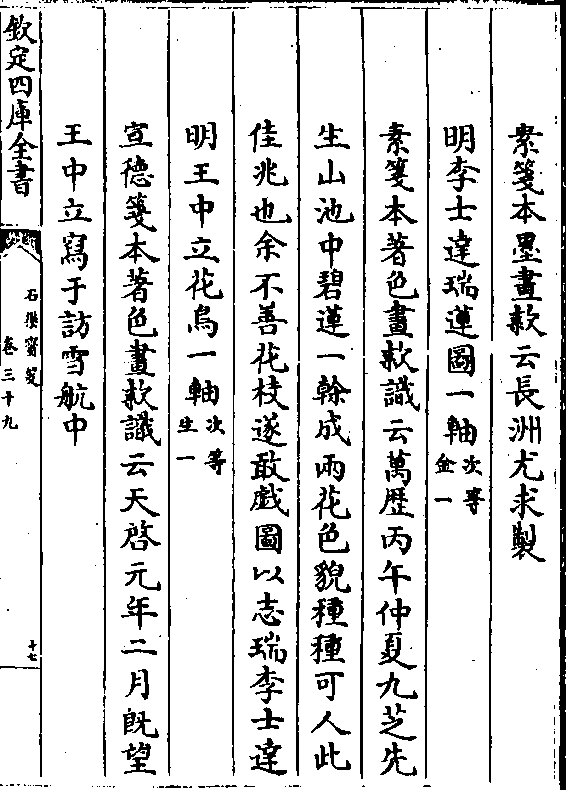 素箋本墨畫款云長洲尤求製
明李士達瑞蓮圖一軸次等金一
素箋本著色畫款識云萬歴丙午仲夏九芝先
生山池中碧蓮一榦成兩花色貌種種可人此
佳兆也余不善花枝遂敢戲圖以志瑞李士達
明王中立花鳥一軸次等生一
宣德箋本著色畫款識云天啓元年二月既望
王中立寫于訪雪航中
欽定四庫全書
石渠寳笈
卷三十九
十七